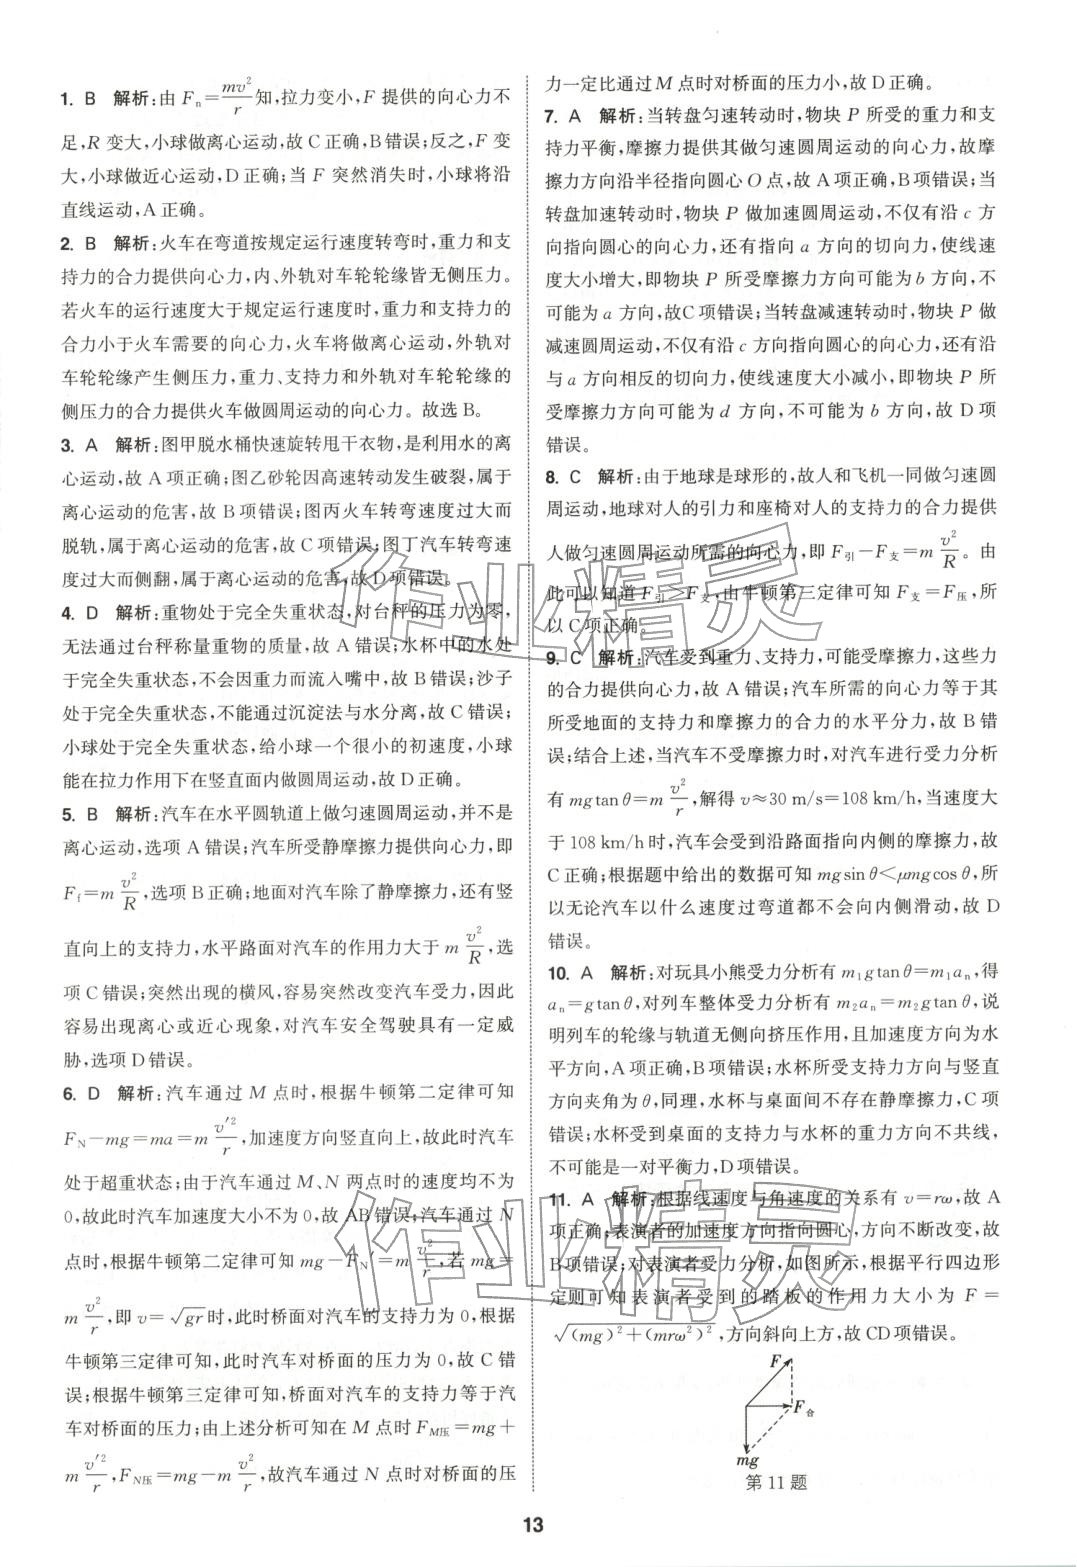 1. B 解析:由 Fₙ=mv²/r 知,拉力变小,F 提供的向心力不
足,R 变大,小球做离心运动,故 C 正确,B 错误;反之,F 变
大,小球做近心运动,D 正确;当 F 突然消失时,小球将沿
直线运动,A 正确。
2. B 解析:火车在弯道按规定运行速度转弯时,重力和支
持力的合力提供向心力,内、外轨对车轮轮缘皆无侧压力。
若火车的运行速度大于规定运行速度时,重力和支持力的
合力小于火车需要的向心力,火车将做离心运动,外轨对
车轮轮缘产生侧压力,重力、支持力和外轨对车轮轮缘的
侧压力的合力提供火车做圆周运动的向心力。故选 B。
3. A 解析:图甲脱水桶快速旋转甩干衣物,是利用水的离
心运动,故 A 项正确;图乙砂轮因高速转动发生破裂,属于
离心运动的危害,故 B 项错误;图丙火车转弯速度过大而
脱轨,属于离心运动的危害,故 C 项错误;图丁汽车转弯速
度过大而侧翻,属于离心运动的危害,故 D 项错误。
4. D 解析:重物处于完全失重状态,对台秤的压力为零,
无法通过台秤称量重物的质量,故 A 错误;水杯中的水处
于完全失重状态,不会因重力而流入嘴中,故 B 错误;沙子
处于完全失重状态,不能通过沉淀法与水分离,故 C 错误;
小球处于完全失重状态,给小球一个很小的初速度,小球
能在拉力作用下在竖直面内做圆周运动,故 D 正确。
5. B 解析:汽车在水平圆轨道上做匀速圆周运动,并不是
离心运动,选项 A 错误;汽车所受静摩擦力提供向心力,即
F_f=m v²/R,选项 B 正确;地面对汽车除了静摩擦力,还有竖
直向上的支持力,水平路面对汽车的作用力大于 m v²/R,选
项 C 错误;突然出现的横风,容易突然改变汽车受力,因此
容易出现离心或近心现象,对汽车安全驾驶具有一定威
胁,选项 D 错误。
6. D 解析:汽车通过 M 点时,根据牛顿第二定律可知
F_N-mg=ma=m v′²/r,加速度方向竖直向上,故此时汽车
处于超重状态;由于汽车通过 M、N 两点时的速度均不为
0,故此时汽车加速度大小不为 0,故 AB 错误;汽车通过 N
点时,根据牛顿第二定律可知 mg-F_N′=m v²/r,若 mg=
m v²/r,即 v=√gr时,此时桥面对汽车的支持力为 0,根据
牛顿第三定律可知,此时汽车对桥面的压力为 0,故 C 错
误;根据牛顿第三定律可知,桥面对汽车的支持力等于汽
车对桥面的压力;由上述分析可知在 M 点时 F_M压=mg+
m v′²/r,F_N压=mg-m v²/r,故汽车通过 N 点时对桥面的压
力一定比通过 M 点时对桥面的压力小,故 D 正确。
7. A 解析:当转盘匀速转动时,物块 P 所受的重力和支
持力平衡,摩擦力提供其做匀速圆周运动的向心力,故摩
擦力方向沿半径指向圆心 O 点,故 A 项正确,B 项错误;当
转盘加速转动时,物块 P 做加速圆周运动,不仅有沿 c 方
向指向圆心的向心力,还有指向 a 方向的切向力,使线速
度大小增大,即物块 P 所受摩擦力方向可能为 b 方向,不
可能为 a 方向,故C 项错误;当转盘减速转动时,物块 P 做
减速圆周运动,不仅有沿 c 方向指向圆心的向心力,还有沿
与 a 方向相反的切向力,使线速度大小减小,即物块 P 所
受摩擦力方向可能为 d 方向,不可能为 b 方向,故 D 项
错误。
8. C 解析:由于地球是球形的,故人和飞机一同做匀速圆
周运动,地球对人的引力和座椅对人的支持力的合力提供
人做匀速圆周运动所需的向心力,即 F引-F支=m v²/R。由
此可以知道 F引>F支,由牛顿第三定律可知 F支=F压,所
以 C 项正确。
9. C 解析:汽车受到重力、支持力,可能受摩擦力,这些力
的合力提供向心力,故 A 错误;汽车所需的向心力等于其
所受地面的支持力和摩擦力的合力的水平分力,故 B 错
误;结合上述,当汽车不受摩擦力时,对汽车进行受力分析
有 mgtan θ=m v²/r,解得 v≈30 m/s=108 km/h,当速度大
于 108 km/h 时,汽车会受到沿路面指向内侧的摩擦力,故
C 正确;根据题中给出的数据可知 mgsin θ<μmgcos θ,所
以无论汽车以什么速度过弯道都不会向内侧滑动,故 D
错误。
10. A 解析:对玩具小熊受力分析有 m₁gtan θ=m₁aₙ,得
aₙ=gtan θ,对列车整体受力分析有 m₂aₙ=m₂gtan θ,说
明列车的轮缘与轨道无侧向挤压作用,且加速度方向为水
平方向,A 项正确,B 项错误;水杯所受支持力方向与竖直
方向夹角为 θ,同理,水杯与桌面间不存在静摩擦力,C 项
错误;水杯受到桌面的支持力与水杯的重力方向不共线,
不可能是一对平衡力,D 项错误。
11. A 解析:根据线速度与角速度的关系有 v=rω,故 A
项正确;表演者的加速度方向指向圆心,方向不断改变,故
B 项错误;对表演者受力分析,如图所示,根据平行四边形
定则可知表演者受到的踏板的作用力大小为 F=
√(mg)²+(mrω²)²,方向斜向上方,故 CD 项错误。
F
F合
mg
第 11 题
13
作业精灵
作业精灵